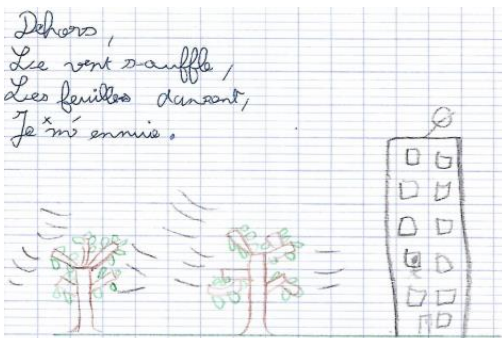 Dehors,
Le vent souffle,
Les feuilles dansent,
Je m'ennuie.